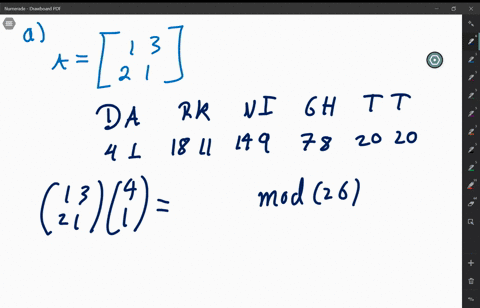 Numerade - Drawboard PDF
a)
A = [1 3
2 1]
DA RK NI GH TT
4 1 18 11 14 9 7 8 20 20
(1 3
2 1) (4
1) = mod (26)